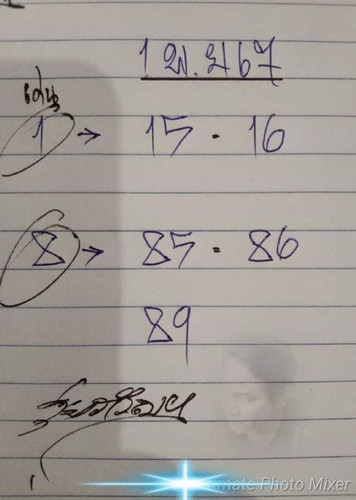 1 พ.ย 67
เด่น
1 → 15 - 16
8 → 85 - 86
89
mate Photo Mixer